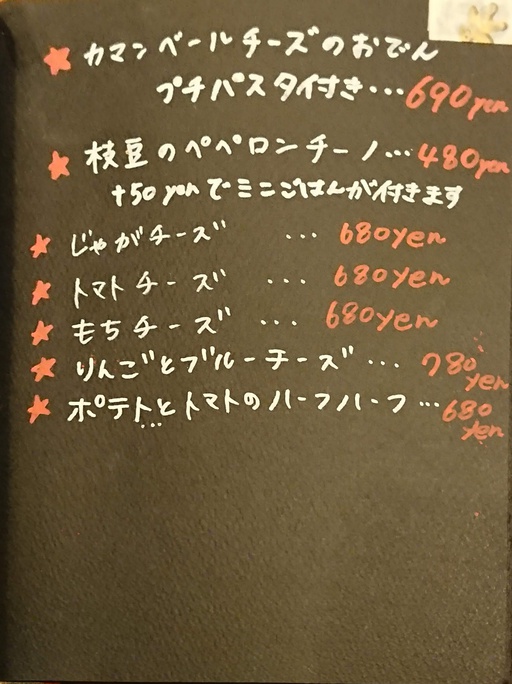 ★ カマンベールチーズのおでん
プチパスタ付き…690yen
★ 枝豆のペペロンチーノ…480yen
+50yenでミニごはんが付きます
★ じゃがチーズ …680yen
★ トマトチーズ …680yen
★ もちチーズ …680yen
★ りんごとブルーチーズ…780
yen
★ ポテトとトマトのハーフハーフ…680
yen